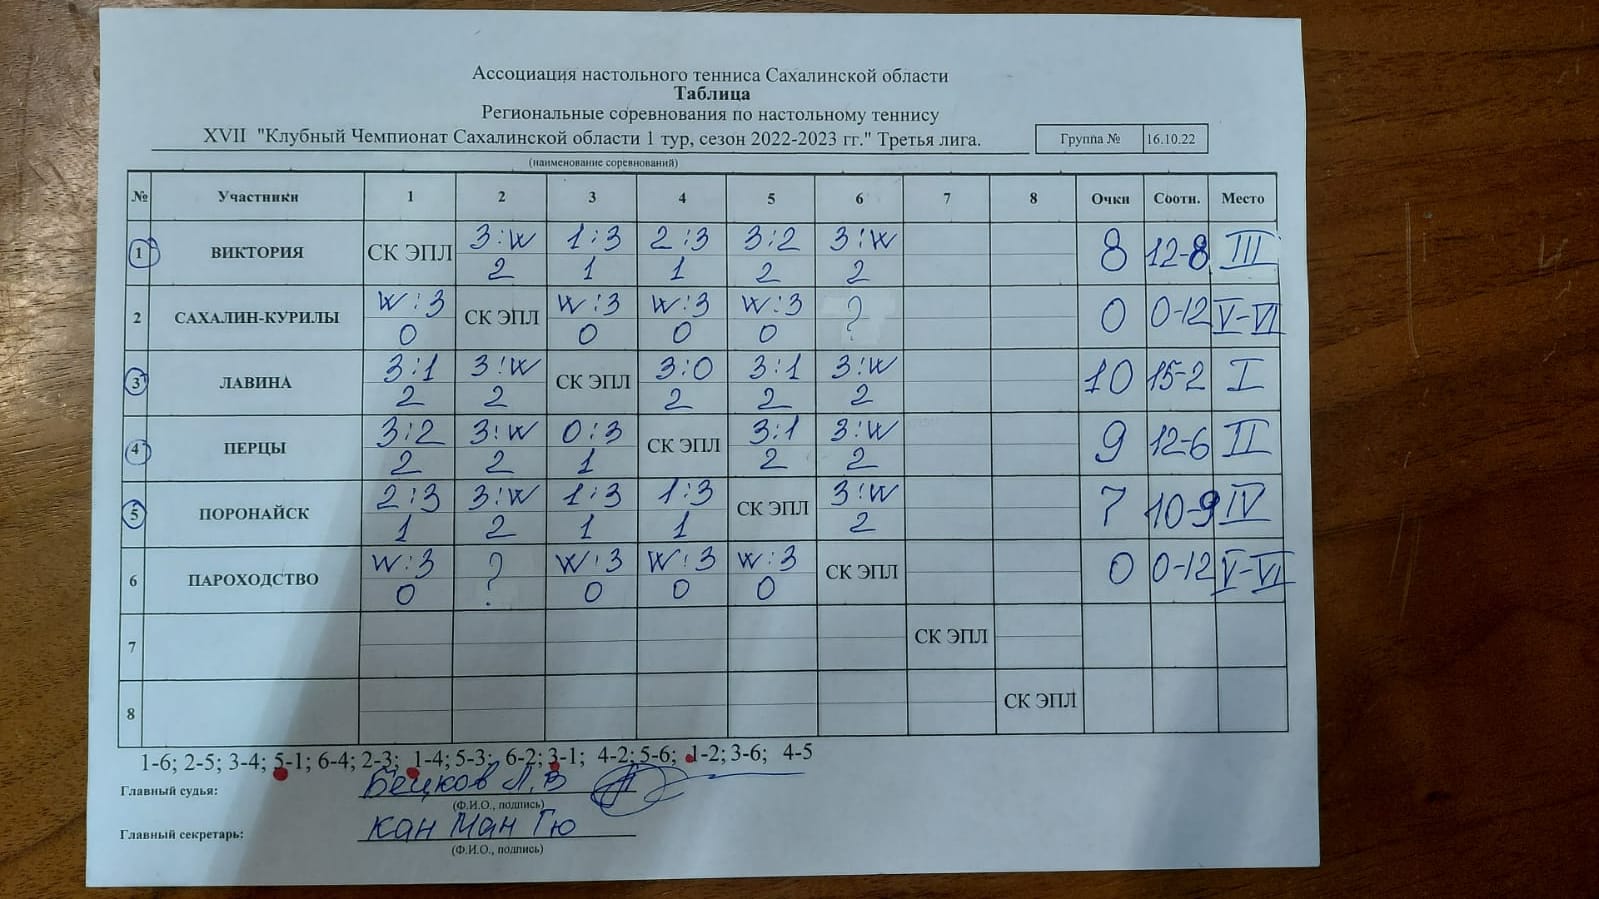 Ассоциация настольного тенниса Сахалинской области
Таблица
Региональные соревнования по настольному теннису
XVII "Клубный Чемпионат Сахалинской области 1 тур, сезон 2022-2023 гг." Третья лига.
Группа № 16.10.22
(наименование соревнований)
№ Участники 1 2 3 4 5 6 7 8 Очки Соотн. Место
1 ВИКТОРИЯ СК ЭПЛ 3:W 1:3 2:3 3:2 3:W 8 12-8 III
2 1 1 2 2
2 САХАЛИН-КУРИЛЫ W:3 СК ЭПЛ W:3 W:3 W:3 ? 0 0-12 V-VI
0 0 0 0
3 ЛАВИНА 3:1 3:W СК ЭПЛ 3:0 3:1 3:W 10 15-2 I
2 2 2 2 2
4 ПЕРЦЫ 3:2 3:W 0:3 СК ЭПЛ 3:1 3:W 9 12-6 II
2 2 1 2 2
5 ПОРОНАЙСК 2:3 3:W 1:3 1:3 СК ЭПЛ 3:W 7 10-9 IV
1 2 1 1 2
6 ПАРОХОДСТВО W:3 ? W:3 W:3 W:3 СК ЭПЛ 0 0-12 V-VI
0 0 0 0
7 СК ЭПЛ
8 СК ЭПЛ
1-6; 2-5; 3-4; 5-1; 6-4; 2-3; 1-4; 5-3; 6-2; 3-1; 4-2; 5-6; 1-2; 3-6; 4-5
Главный судья: Бецков Л.В
(Ф.И.О., подпись)
Главный секретарь: Кан Ман Гю
(Ф.И.О., подпись)